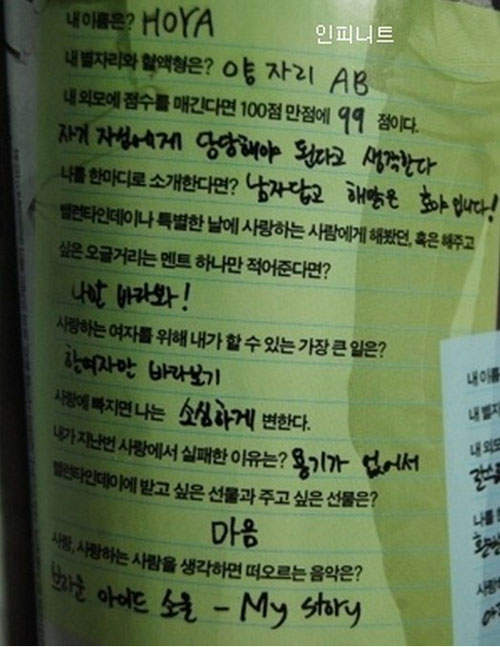 인피니트
내 이름은? HOYA
내 별자리와 혈액형은? 양자리 AB
내 외모에 점수를 매긴다면 100점 만점에 99 점이다.
자기 자신에게 당당해야 된다고 생각한다
나를 한마디로 소개한다면? 남자답고 해맑은 호야입니다!
밸런타인데이나 특별한 날에 사랑하는 사람에게 해봤던, 혹은 해주고
싶은 오글거리는 멘트 하나만 적어준다면?
나만 바라봐!
사랑하는 여자를 위해 내가 할 수 있는 가장 큰 일은?
한여자만 바라보기
사랑에 빠지면 나는 소심하게 변한다.
내가 지난번 사랑에서 실패한 이유는? 용기가 없어서
밸런타인데이에 받고 싶은 선물과 주고 싶은 선물은?
마음
사랑, 사랑하는 사람을 생각하면 떠오르는 음악은?
브라운 아이드 소울 - My story
내 이름
내 별자
내 외모
나를
사랑